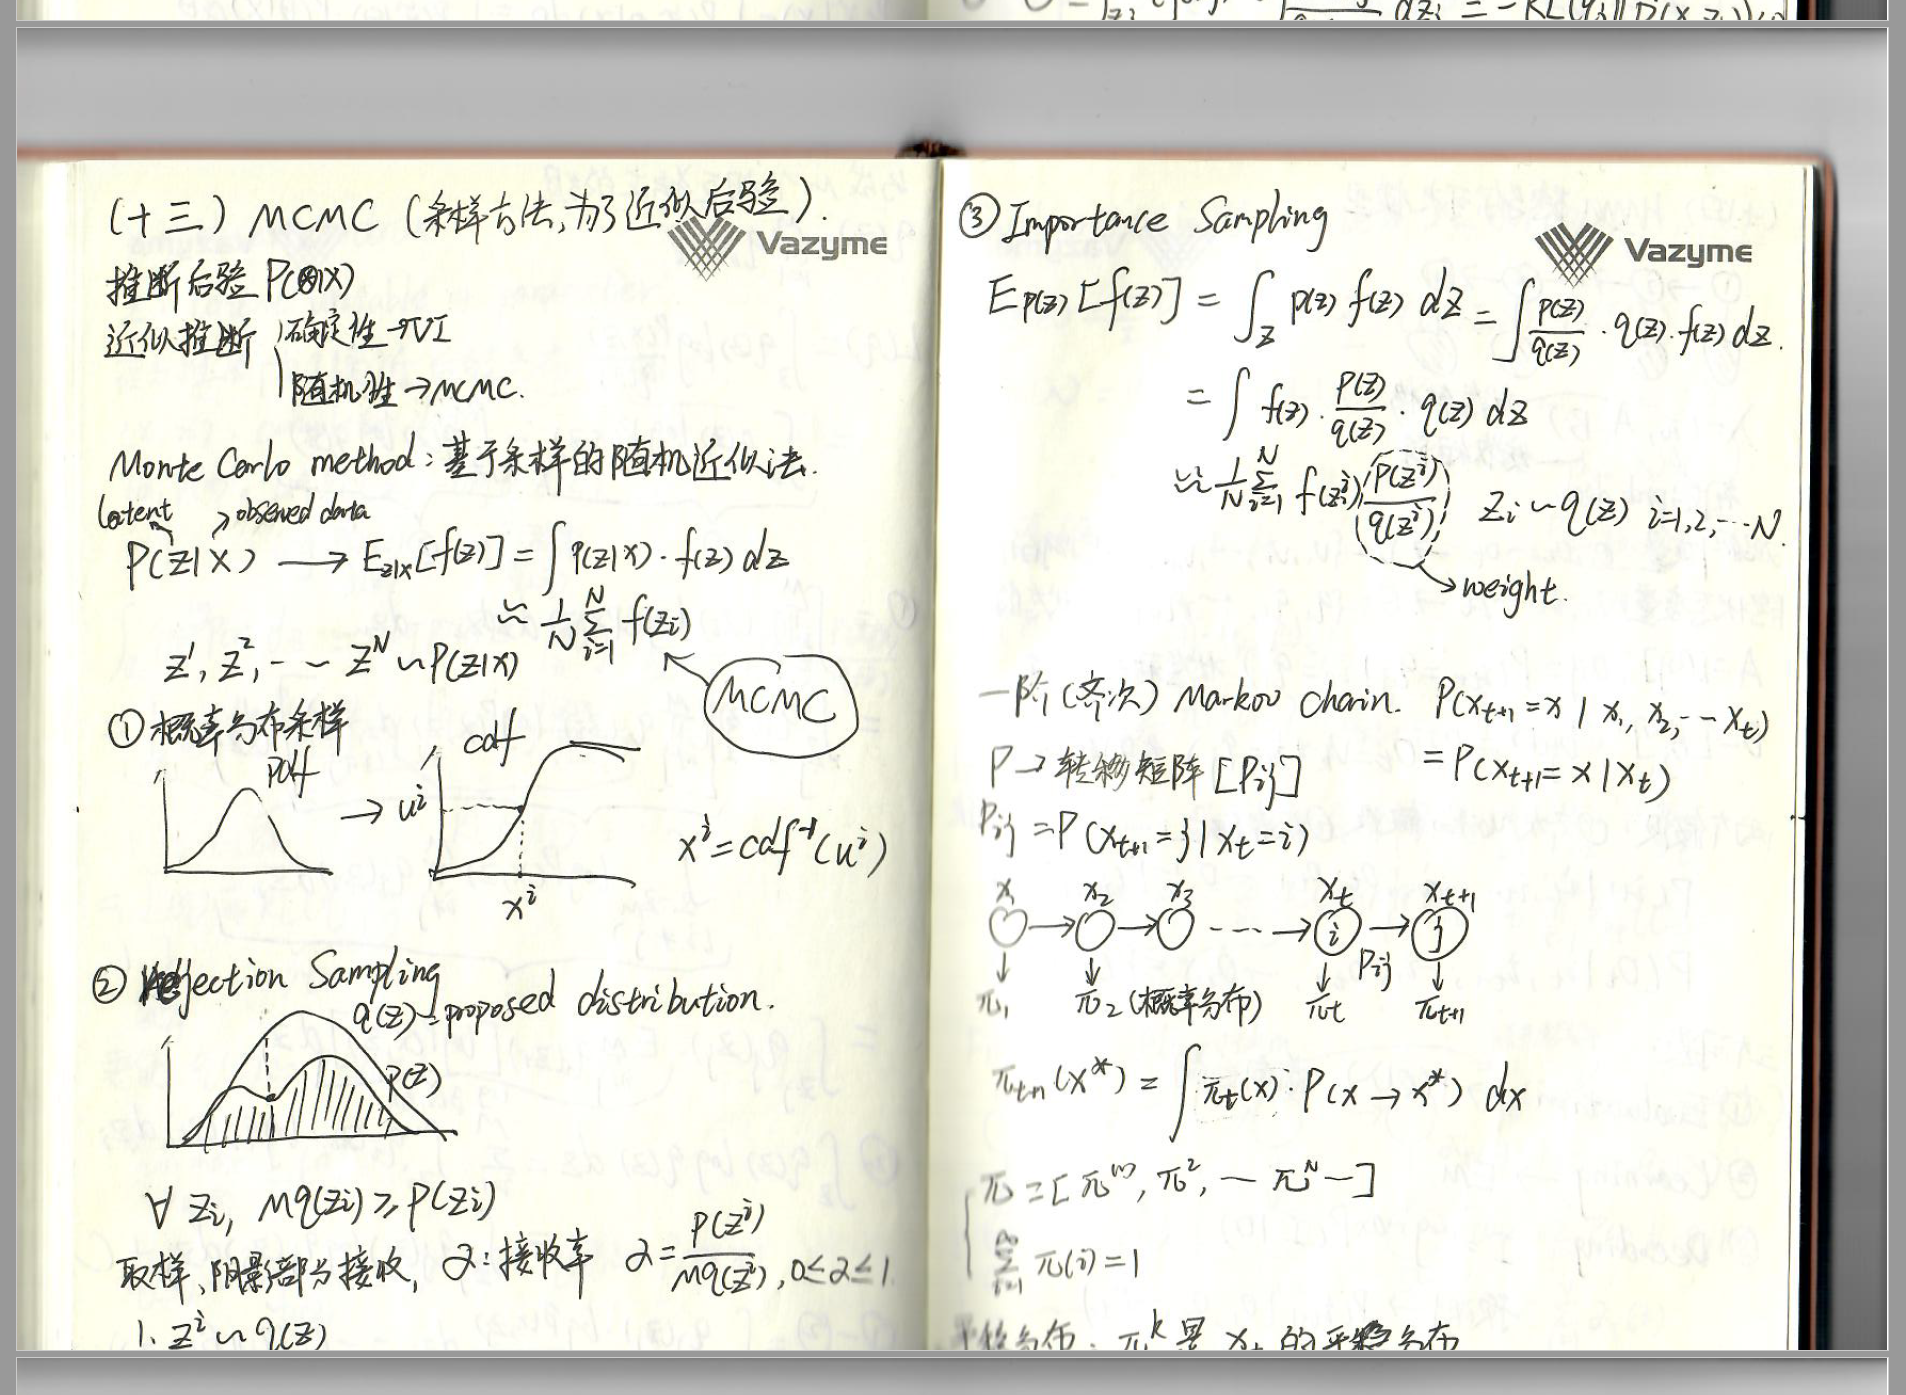 (十三) MCMC (采样方法,为了近似后验).
Vazyme
推断后验 P(θ|X)
近似推断 确定性→VI
随机性→MCMC.
Monte Carlo method: 基于采样的随机近似法.
latent observed data
P(Z|X) ⟶ E_{z|x}[f(z)] = ∫ p(z|x)·f(z) dz
≈ 1/N Σ_{i=1}^{N} f(z_i)
z^1, z^2, -- z^N ~ P(z|x)
MCMC
① 概率分布采样
pdf → cdf
u^i
x^i = cdf^{-1}(u^i)
x^i
② Rejection Sampling
q(z)→proposed distribution.
p(z)
∀ z_i, Mq(z_i) ≥ P(z_i)
取样,阴影部分接收, α:接收率 α = P(z^i)/Mq(z^i), 0≤α≤1
1. z^i ~ q(z)
③ Importance Sampling
Vazyme
E_{p(z)}[f(z)] = ∫_z p(z) f(z) dz = ∫ p(z)/q(z) · q(z)·f(z) dz.
= ∫ f(z) · p(z)/q(z) · q(z) dz
≈ 1/N Σ_{i=1}^{N} f(z^i) p(z^i)/q(z^i) z_i ~ q(z) i=1,2,--N.
→weight.
一阶(齐次) Markov chain. P(x_{t+1}=x | x_1, x_2, -- x_t)
P→转移矩阵 [P_ij] = P(x_{t+1}=x|x_t)
P_ij = P(x_{t+1}=j|x_t=i)
x_1 x_2 x_3 x_t x_{t+1}
→ → --- → i → j
P_ij
π_1 π_2(概率分布) π_t π_{t+1}
π_{t+1}(x*) = ∫ π_t(x)·P(x→x*) dx
π = [π^(1), π^2, — π^N —]
Σ_{i=1}^{∞} π(i)=1